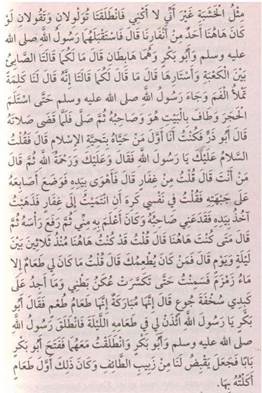 مِثْلُ الْخَشَبَةِ غَيْرَ أَنِّي لاَ أَكْنِي فَانْطَلَقَتَا تُوَلْوِلاَنِ وَتَقُولاَنِ لَوْ
كَانَ هَاهُنَا أَحَدٌ مِنْ أَنْفَارِنَا قَالَ فَاسْتَقْبَلَهُمَا رَسُولُ اللَّهِ صلى الله
عليه وسلم وَأَبُو بَكْرٍ وَهُمَا هَابِطَانِ قَالَ مَا لَكُمَا قَالَتَا الصَّابِئُ
بَيْنَ الْكَعْبَةِ وَأَسْتَارِهَا قَالَ مَا قَالَ لَكُمَا قَالَتَا إِنَّهُ قَالَ لَنَا كَلِمَةً
تَمْلأُ الْفَمَ وَجَاءَ رَسُولُ اللَّهِ صلى الله عليه وسلم حَتَّى اسْتَلَمَ
الْحَجَرَ وَطَافَ بِالْبَيْتِ هُوَ وَصَاحِبُهُ ثُمَّ صَلَّى فَلَمَّا قَضَى صَلاَتَهُ
قَالَ أَبُو ذَرٍّ فَكُنْتُ أَنَا أَوَّلَ مَنْ حَيَّاهُ بِتَحِيَّةِ الإِسْلاَمِ قَالَ فَقُلْتُ
السَّلاَمُ عَلَيْكَ يَا رَسُولَ اللَّهِ فَقَالَ وَعَلَيْكَ وَرَحْمَةُ اللَّهِ ثُمَّ قَالَ
مَنْ أَنْتَ قَالَ قُلْتُ مِنْ غِفَارٍ قَالَ فَأَهْوَى بِيَدِهِ فَوَضَعَ أَصَابِعَهُ
عَلَى جَبْهَتِهِ فَقُلْتُ فِي نَفْسِي كَرِهَ أَنِ انْتَمَيْتُ إِلَى غِفَارٍ فَذَهَبْتُ
آخُذُ بِيَدِهِ فَقَدَعَنِي صَاحِبُهُ وَكَانَ أَعْلَمَ بِهِ مِنِّي ثُمَّ رَفَعَ رَأْسَهُ ثُمَّ
قَالَ مَتَى كُنْتَ هَاهُنَا قَالَ قُلْتُ قَدْ كُنْتُ هَاهُنَا مُنْذُ ثَلاَثِينَ بَيْنَ
لَيْلَةٍ وَيَوْمٍ قَالَ فَمَنْ كَانَ يُطْعِمُكَ قَالَ قُلْتُ مَا كَانَ لِي طَعَامٌ إِلاَّ
مَاءُ زَمْزَمَ فَسَمِنْتُ حَتَّى تَكَسَّرَتْ عُكَنُ بَطْنِي وَمَا أَجِدُ عَلَى
كَبِدِي سُخْفَةَ جُوعٍ قَالَ إِنَّهَا مُبَارَكَةٌ إِنَّهَا طَعَامُ طُعْمٍ فَقَالَ أَبُو
بَكْرٍ يَا رَسُولَ اللَّهِ ائْذَنْ لِي فِي طَعَامِهِ اللَّيْلَةَ فَانْطَلَقَ رَسُولُ اللَّهِ
صلى الله عليه وسلم وَأَبُو بَكْرٍ وَانْطَلَقْتُ مَعَهُمَا فَفَتَحَ أَبُو بَكْرٍ
بَابًا فَجَعَلَ يَقْبِضُ لَنَا مِنْ زَبِيبِ الطَّائِفِ وَكَانَ ذَلِكَ أَوَّلَ طَعَامٍ
أَكَلْتُهُ بِهَا.